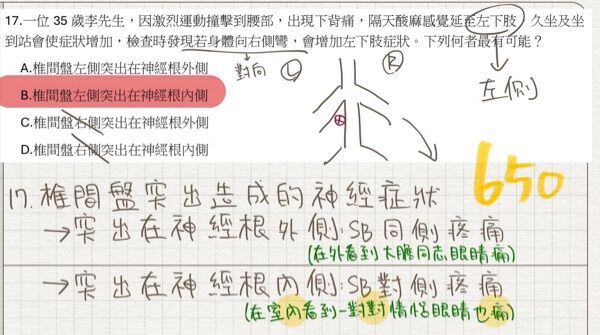 17.一位 35 歲李先生，因激烈運動撞擊到腰部，出現下背痛，隔天酸麻感覺延至左下肢，久坐及坐
到站會使症狀增加，檢查時發現若身體向右側彎，會增加左下肢症狀。下列何者最有可能？
對向 L R
左側
A.椎間盤左側突出在神經根外側
B.椎間盤左側突出在神經根內側
C.椎間盤右側突出在神經根外側
D.椎間盤右側突出在神經根內側
650
17.椎間盤突出造成的神經症狀
→突出在神經根外側:SB同側疼痛
(在外看到大膽同志眼睛痛)
→突出在神經根內側:SB對側疼痛
(在室內看到一對對情侶眼睛也痛)